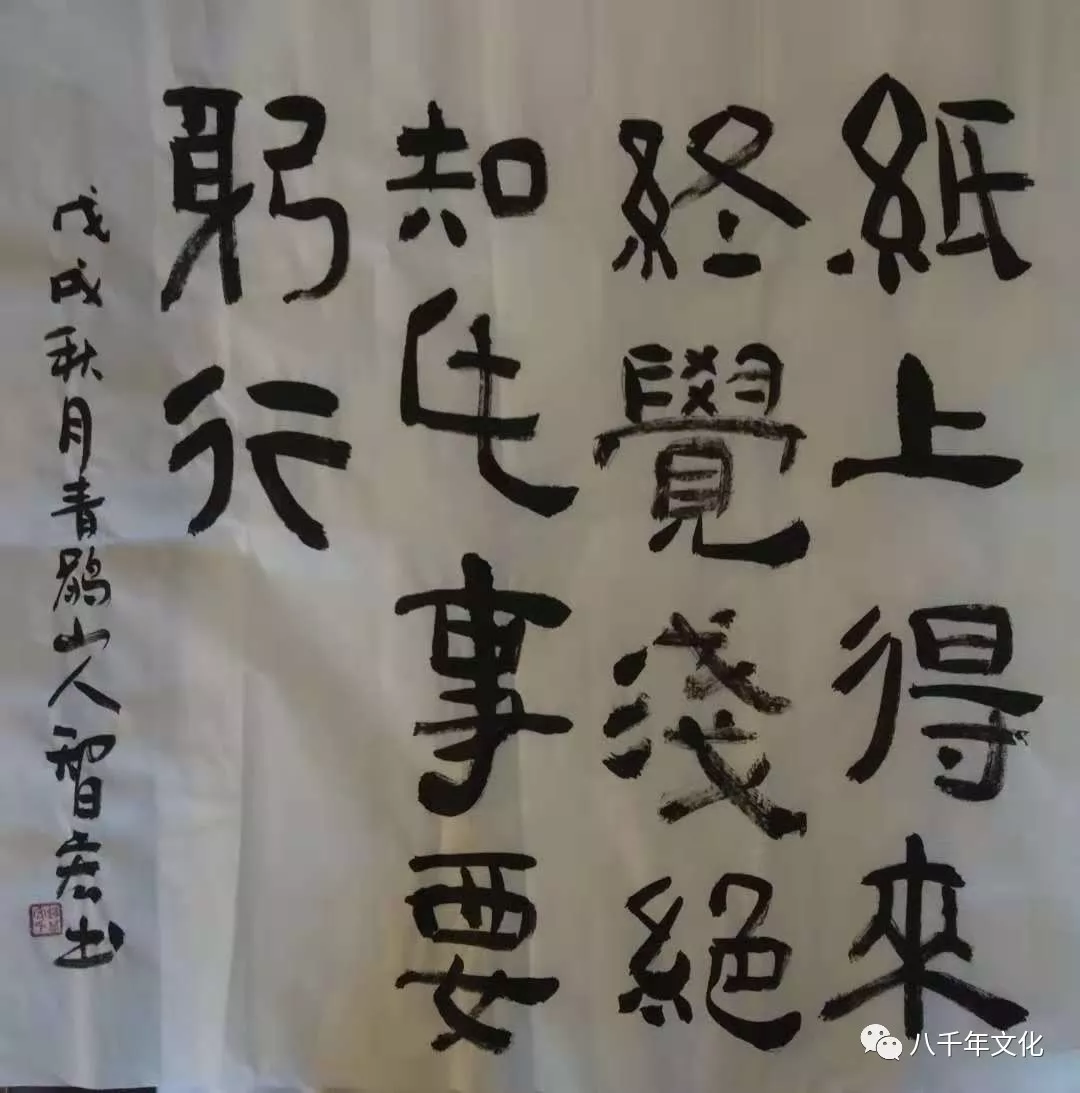 紙上得來
終覺淺絕
知此事要
躬行
戊戌秋月青鹃山人智宏书
八千年文化